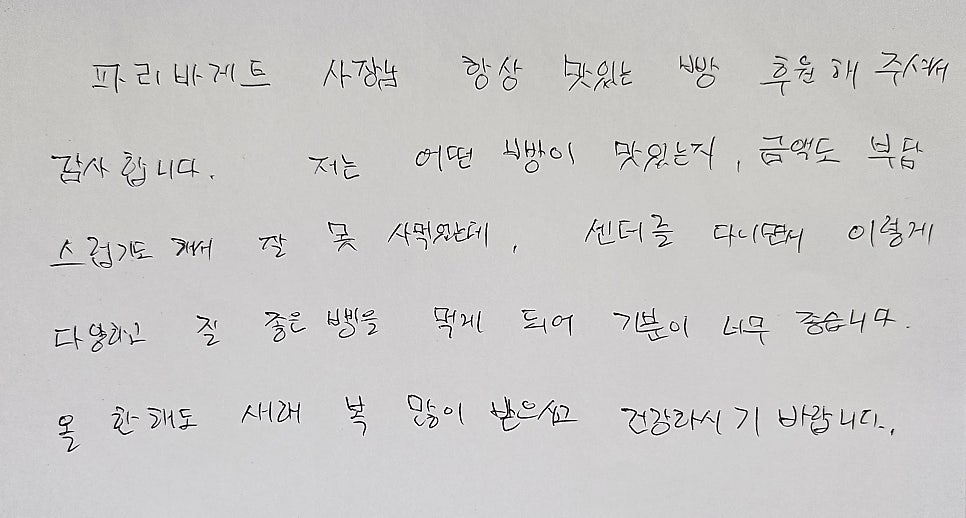 파리바게트 사장님 항상 맛있는 빵 후원해 주셔서
감사합니다. 저는 어떤 빵이 맛있는지, 금액도 부담
스럽기도 해서 잘 못 사먹었는데, 센터를 다니면서 이렇게
다양하고 질 좋은 빵을 먹게 되어 기분이 너무 좋습니다.
올 한해도 새해 복 많이 받으시고 건강하시기 바랍니다.